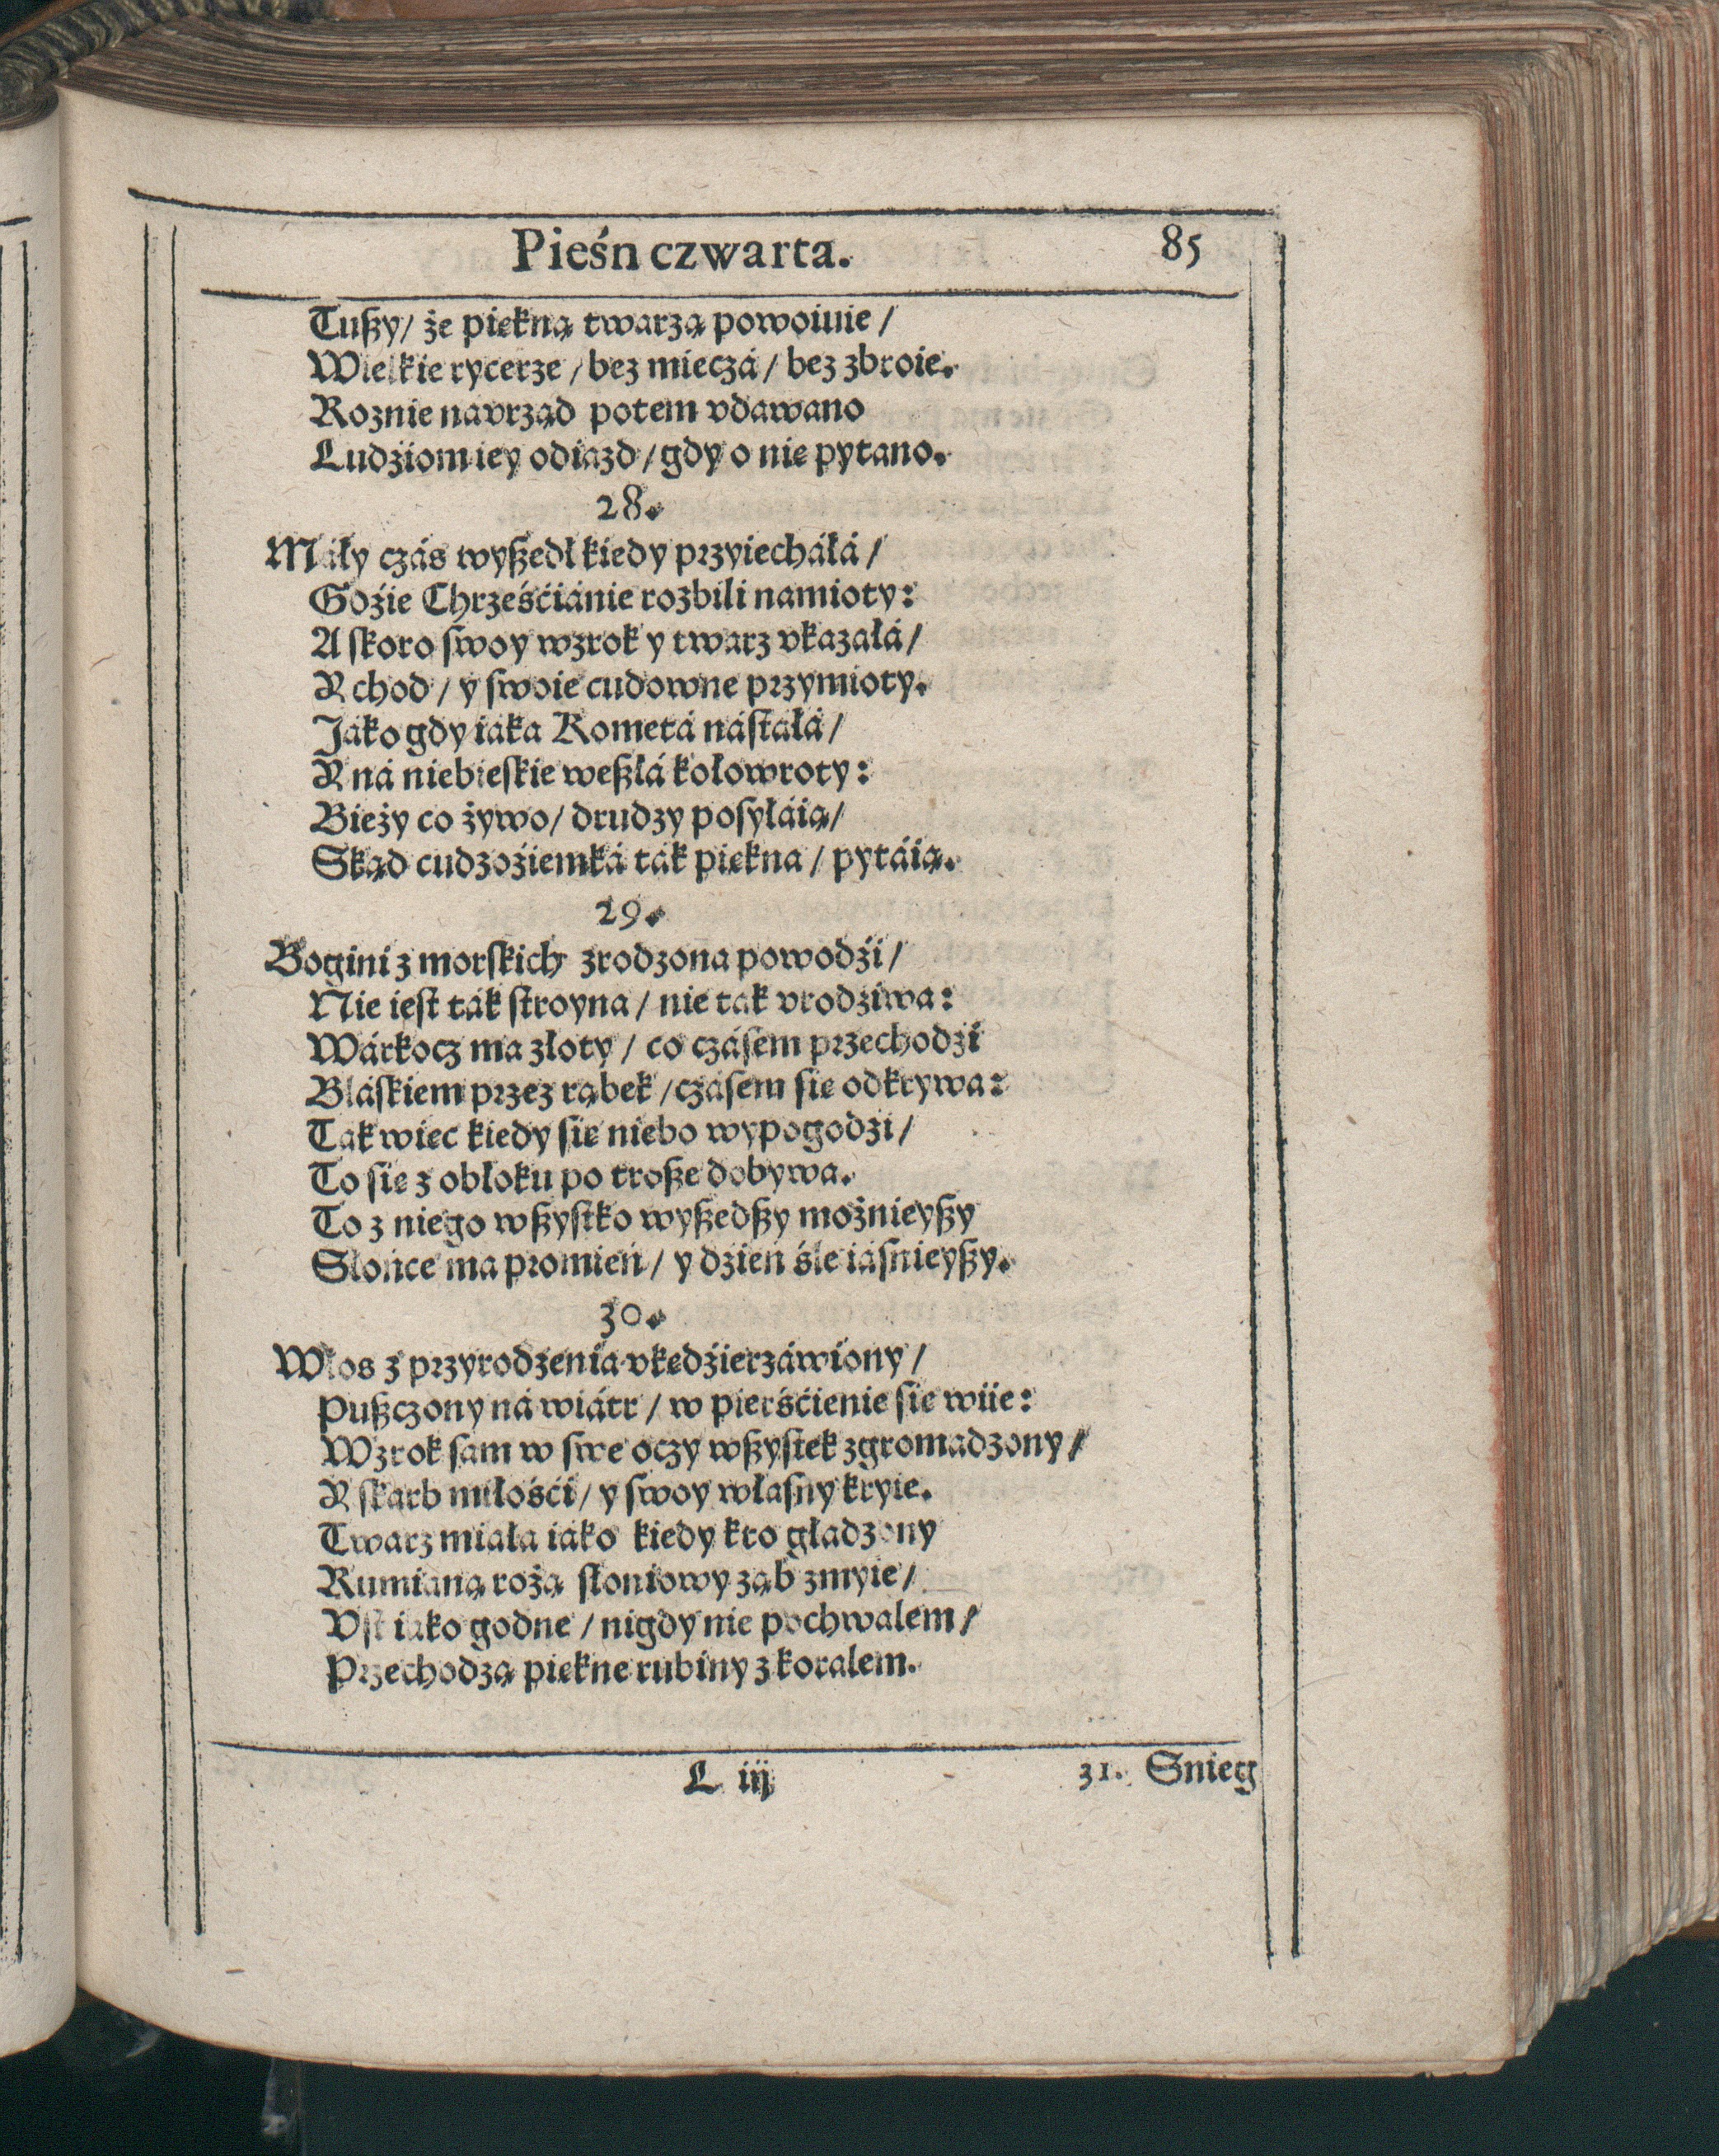 Pieśn czwarta. 85
Tußy/ że piękną twarzą powoiuie/
Wielkie rycerze/ bez mieczá/ bez zbroie.
Roznie navrząd potem vdawano
Ludźiom iey odiazd/ gdy o nię pytano.
28.
Máły czás wyßedł kiedy przyiecháłá/
Gdźie Chrześćiánie rozbili namioty:
A ſkoro ſwoy wzrok y twarz vkazałá/
Y chod/ y ſwoie cudowne przymioty.
Jáko gdy iáka Kometá náſtáłá/
Y ná niebieſkie weßłá kołowroty:
Bieży co żywo/ drudzy poſyłáią/
Skąd cudzoźiemká ták piękna/ pytáią.
29.
Bogini z morſkich zrodzona powodźi/
Nie ieſt ták ſtroyna/ nie tak vrodźiwa:
Wárkocz ma złoty/ co czáſem przechodźi
Bláſkiem przez rąbek/ czáſem ſie odkrywa:
Tak więc kiedy ſie niebo wypogodźi/
To ſie z obłoku po troße dobywa.
To z niego wßyſtko wyßedßy możnieyßy
Słońce ma promień/ y dźień śle iáſnieyßy.
30.
Włos z przyrodzenia vkędźierzáwiony/
Pußczony ná wiátr/ w pierśćienie ſie wiie:
Wzrok ſam w ſwe oczy wßyſtek zgromadzony/
Y ſkarb miłośći/ y ſwoy właſny kryie.
Twarz miała iáko kiedy kto głádzony
Rumianą rożą ſłoniowy ząb zmyie/
Vſt iáko godne/ nigdy nie pochwalem/
Przechodzą piękne rubiny z koralem.
L iij 31. Snieg